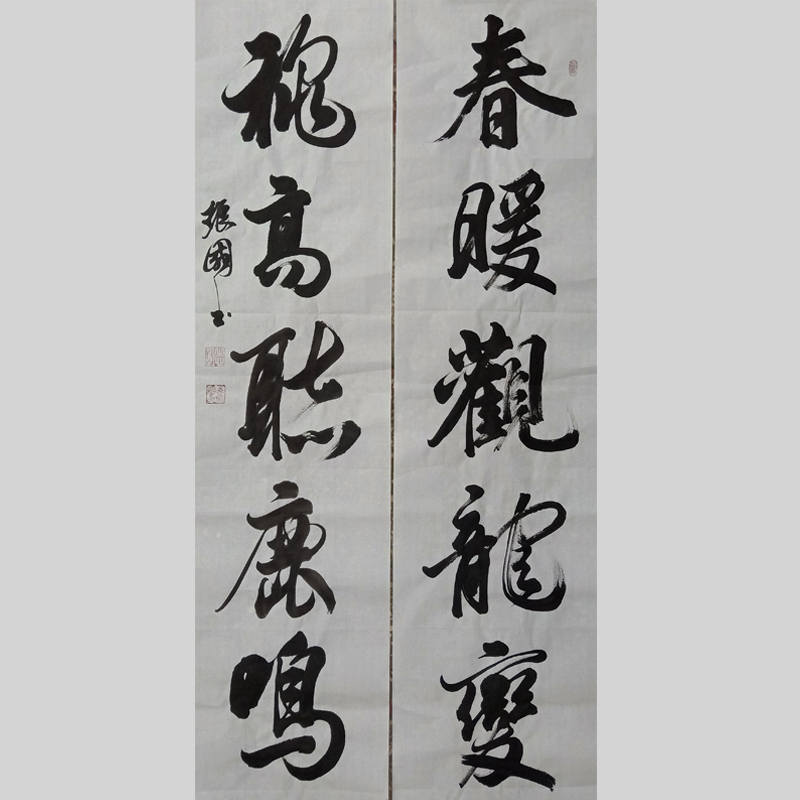 春暖觀龍變
穐高聽鹿鳴
振國书